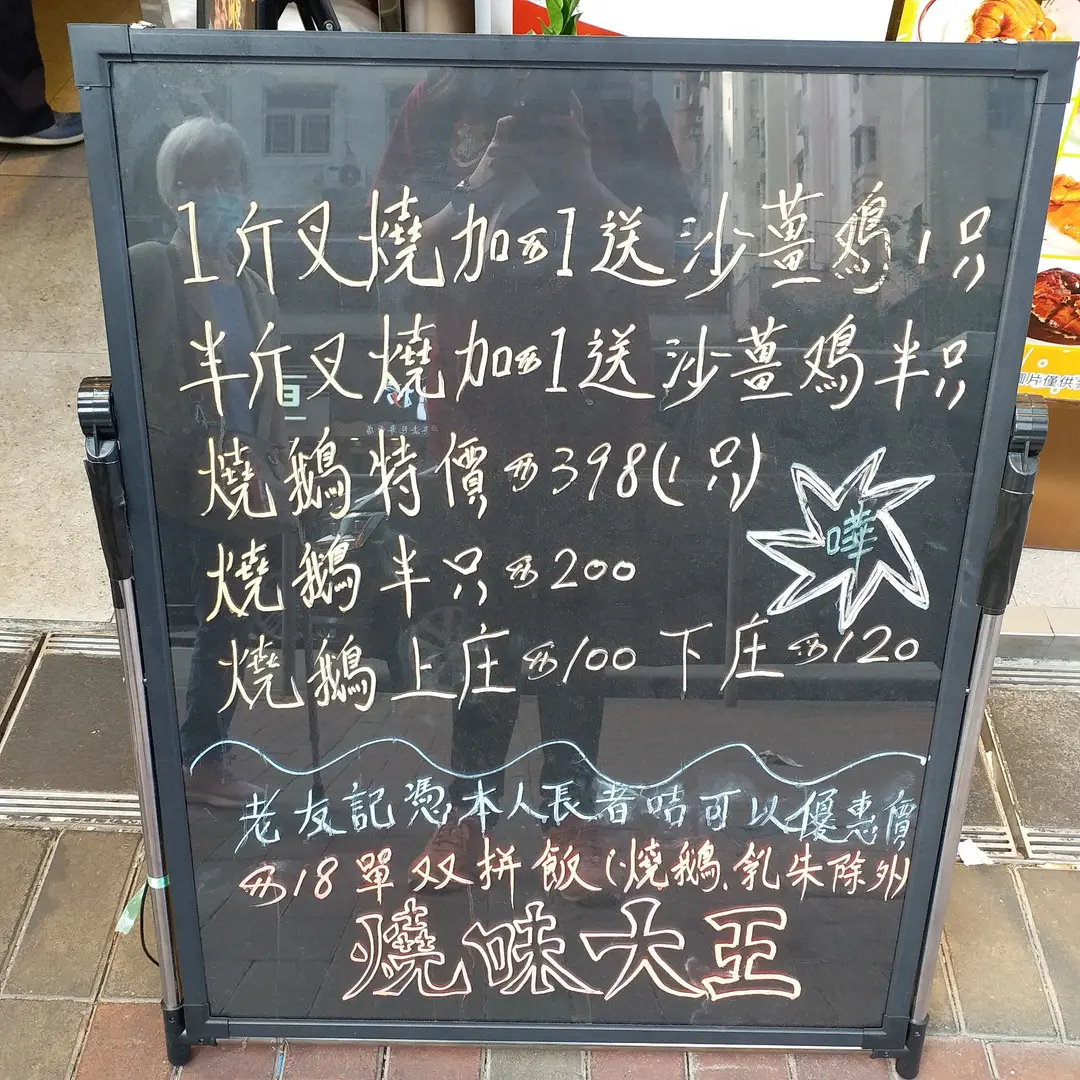 1斤叉燒加$1送沙薑鴻1只
半斤叉燒加$1送沙薑鴻半只
燒鵝特價$398(1只)
嘩
燒鵝半只$200
燒鵝上庄$100 下庄$120
老友記憑本人長者咭可以優惠價
$18單双拼飯(燒鵝、乳朱除外)
燒味大王
片僅供